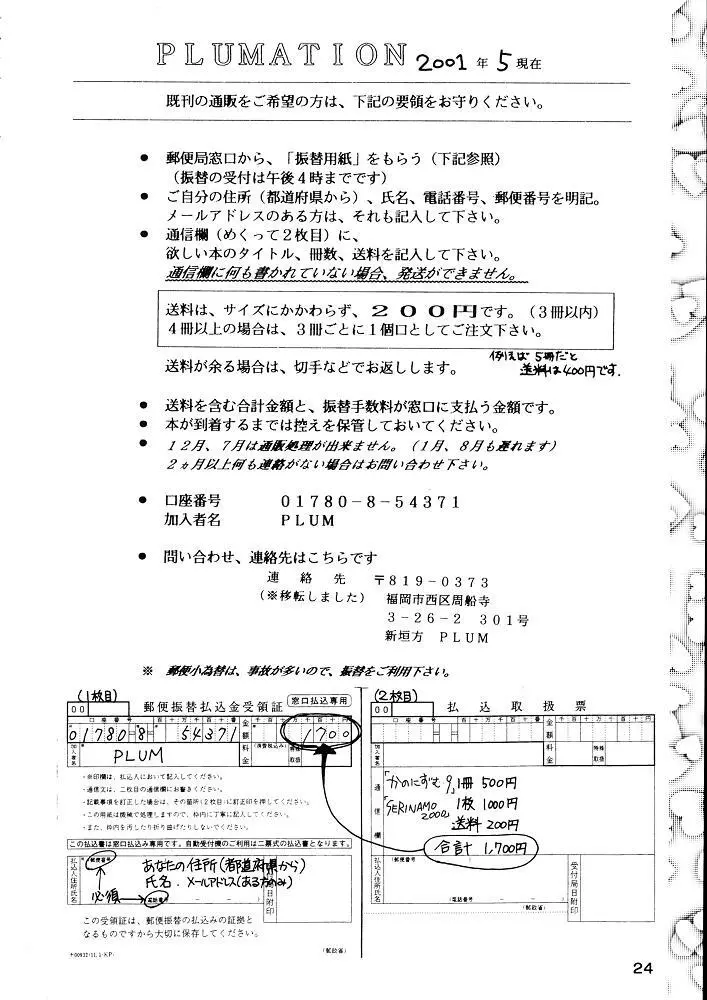 PLUMATION 2001年 5 現在
既刊の通販をご希望の方は、下記の要領をお守りください。
● 郵便局窓口から、「振替用紙」をもらう（下記参照）
（振替の受付は午後４時までです）
● ご自分の住所（都道府県から）、氏名、電話番号、郵便番号を明記。
メールアドレスのある方は、それも記入して下さい。
● 通信欄（めくって２枚目）に、
欲しい本のタイトル、冊数、送料を記入して下さい。
通信欄に何も書かれていない場合、発送ができません。
送料は、サイズにかかわらず、２００円です。（３冊以内）
４冊以上の場合は、３冊ごとに１個口としてご注文下さい。
送料が余る場合は、切手などでお返しします。
例えば 5冊だと
送料は400円です.
● 送料を含む合計金額と、振替手数料が窓口に支払う金額です。
● 本が到着するまでは控えを保管しておいてください。
● １２月、７月は通販処理が出来ません。（１月、８月も遅れます）
２ヵ月以上何も連絡がない場合はお問い合わせ下さい。
● 口座番号 ０１７８０－８－５４３７１
加入者名 ＰＬＵＭ
● 問い合わせ、連絡先はこちらです
連絡先 〒８１９－０３７３
（※移転しました） 福岡市西区周船寺
３－２６－２ ３０１号
新垣方 ＰＬＵＭ
※ 郵便小為替は、事故が多いので、振替をご利用下さい。
(1枚目)
00 郵便振替払込金受領証 窓口払込専用
口座番号 百十万千百十番 金額 千百十万千百十円
01780-8-54371 1700
加入者名 PLUM 料金 (消費税込み) 特殊取扱
・※印欄は、払込人において記入してください。
・通信文は、二枚目の通信欄にお書きください。
・記載事項を訂正した場合は、その箇所(2枚目)に訂正印を押してください。
・この用紙は機械で処理しますので、枠内に丁寧に記入してください。
・また、枠内を汚したり折り曲げたりしないでください。
この払込書は窓口払込み専用です。自動受付機のご利用は二票式の払込書となります。
払込人住所氏名 郵便番号 あなたの住所(都道府県から)
氏名．メールアドレス(ある方のみ)
必須 電話番号
日附印
この受領証は、郵便振替の払込みの証拠と
なるものですから大切に保存してください。
(郵政省)
(2枚目)
00 払込取扱票
口座番号 百十万千百十番 金額 千百十万千百十円
加入者名 料金 特殊取扱
通信欄
「かのにずむ9」1冊 500円
「SERINAMO 2000」1枚 1000円
送料 200円
合計 1,700円
払込人住所氏名
(電話番号 － － )
受付局日附印
(郵政省)
24